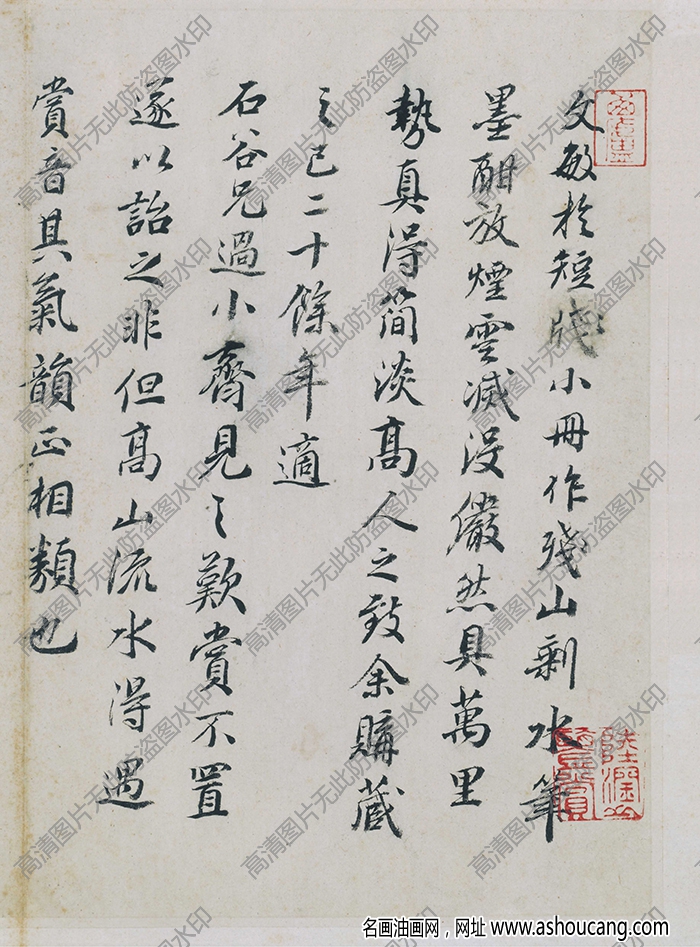 文敏於短牋小冊作殘山剩水筆
墨酣放煙雲滅没儼然具萬里
勢真得簡淡高人之致余購蔵
之已二十餘年適
石谷兄過小齋見之歎賞不置
遂以詒之非但高山流水得遇
賞音其氣韻正相類也
高清图片无此防盗图水印
名画油画网，网址 www.ashoucang.com